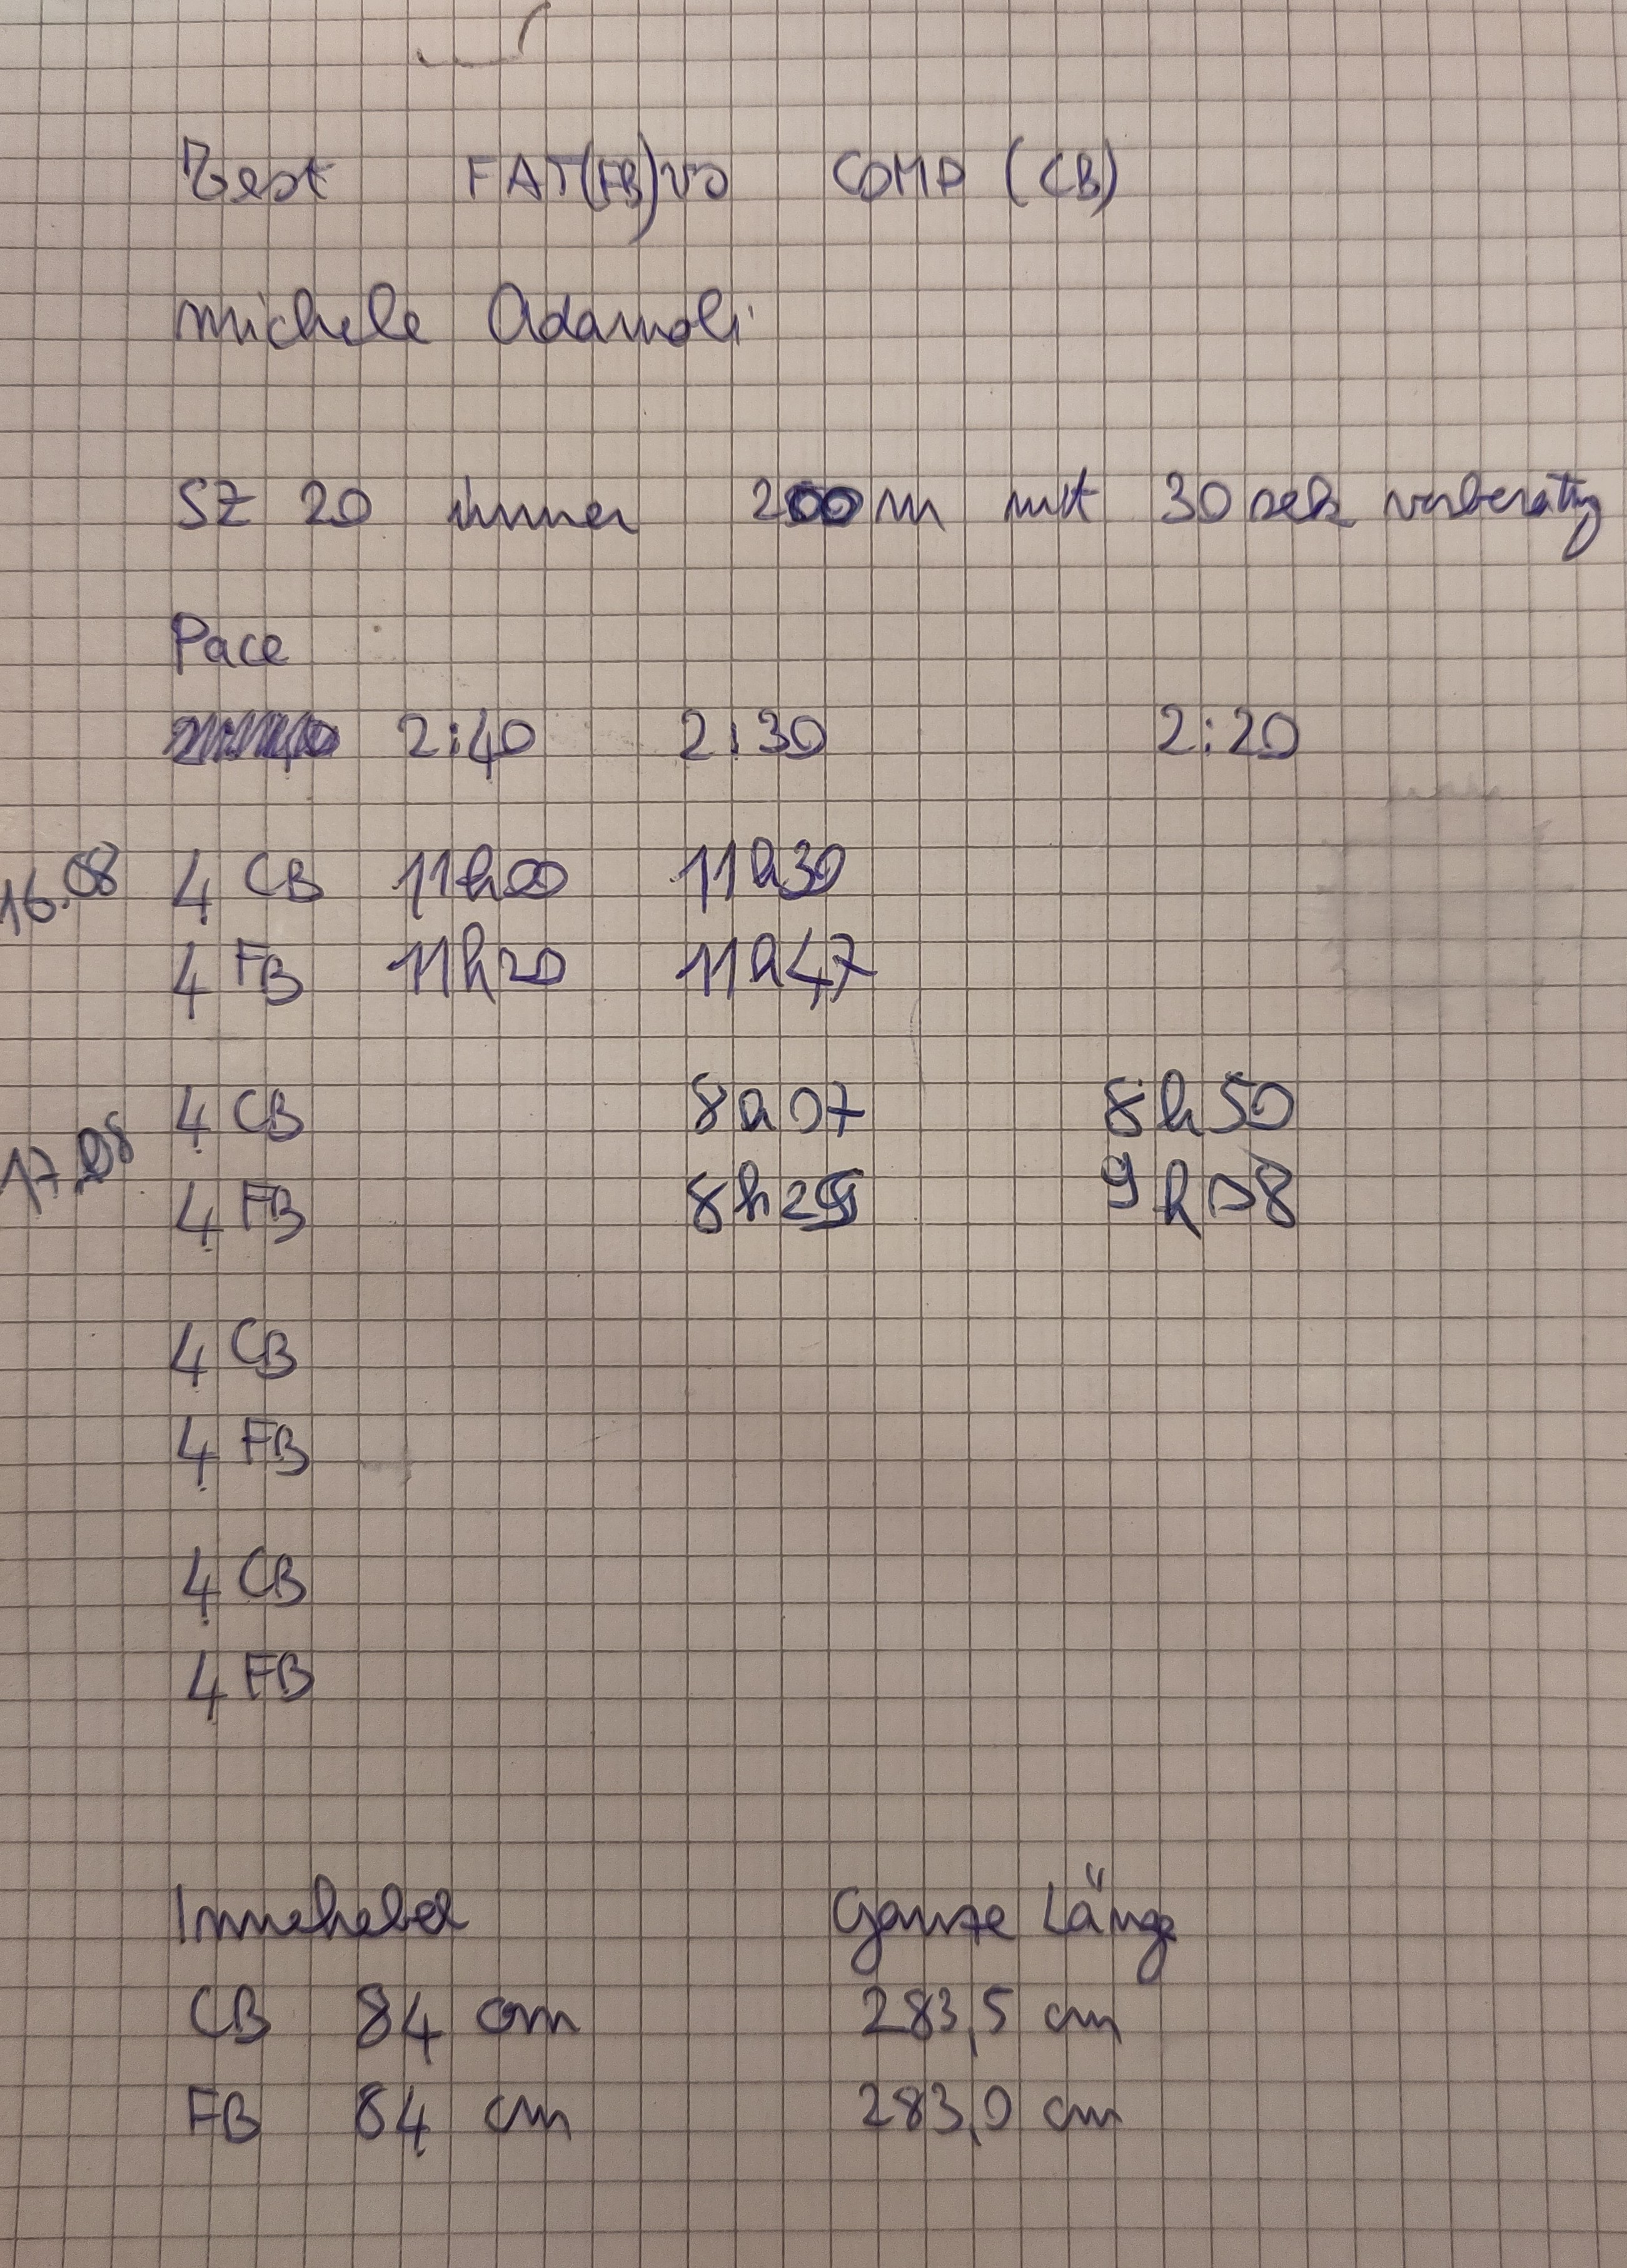 Test FAT(FB) vs COMP (CB)
Michele Adamoli
SZ 20 immer 200m mit 30 sek
Pace
2:40 2:30 2:20
16.08 4 CB 11h00 11h30
4 FB 11h20 11h47
17.08 4 CB 8h07 8h50
4 FB 9h08
4 CB
4 FB
4 CB
4 FB
Innehebel Ganze Länge
CB 84 cm 283,5 cm
FB 84 cm 283,0 cm